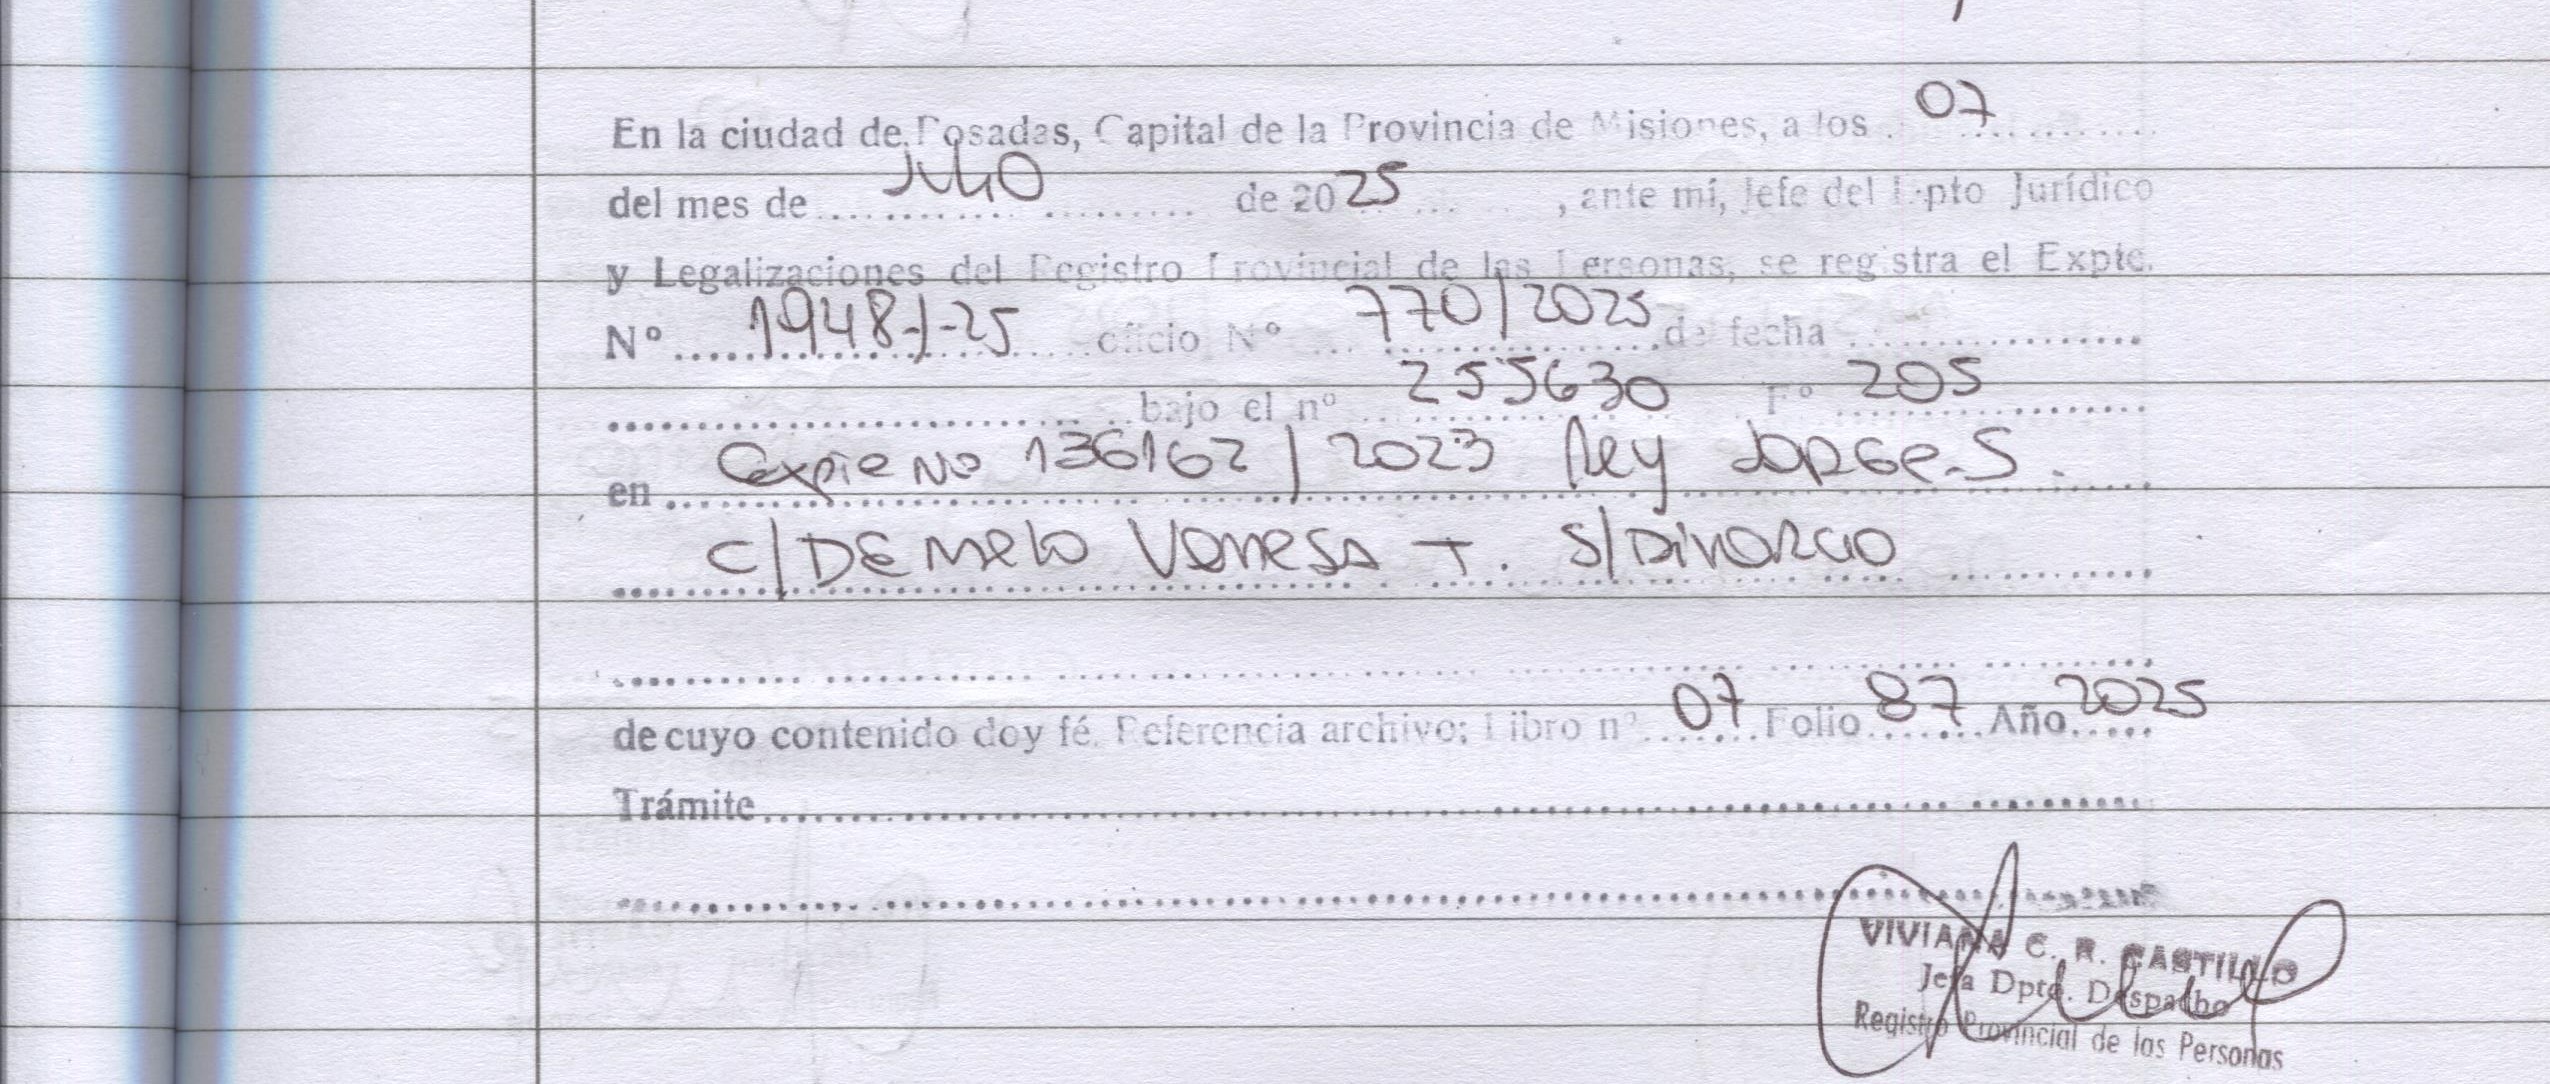 En la ciudad de Posadas, Capital de la Provincia de Misiones, a los 07
del mes de JULIO de 2025, ante mí, Jefe del Dpto Jurídico
y Legalizaciones del Registro Provincial de las Personas, se registra el Expte.
Nº 1948-/-25 oficio Nº 770/2025 de fecha
bajo el nº 255630 Fº 205
en Expte Nº 136162/2023 Rey JORGE.S.
C/DE MELO VANESA T. S/DIVORCIO
de cuyo contenido doy fé. Referencia archivo; Libro nº 07 Folio 87 Año 2025
Trámite
VIVIANA C. R. CASTILLO
Jefa Dpto. Despacho
Registro Provincial de las Personas